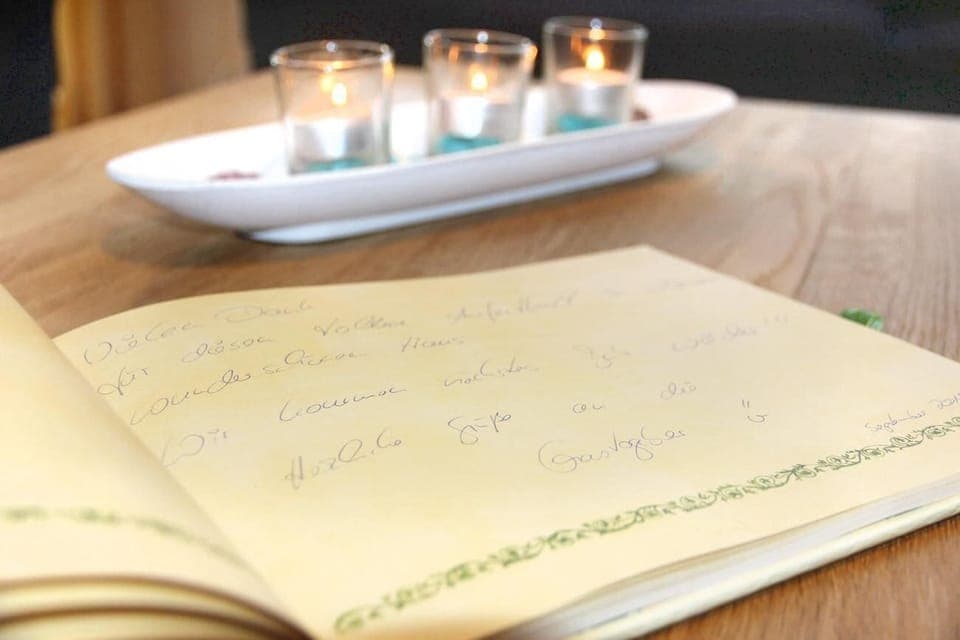 Vielen Dank
für diesen tollen Aufenthalt in
wunderschönen Haus.
Wir kommen nächstes Jahr wieder!!!
Herzliche Grüße an die
Gastgeber
September 201